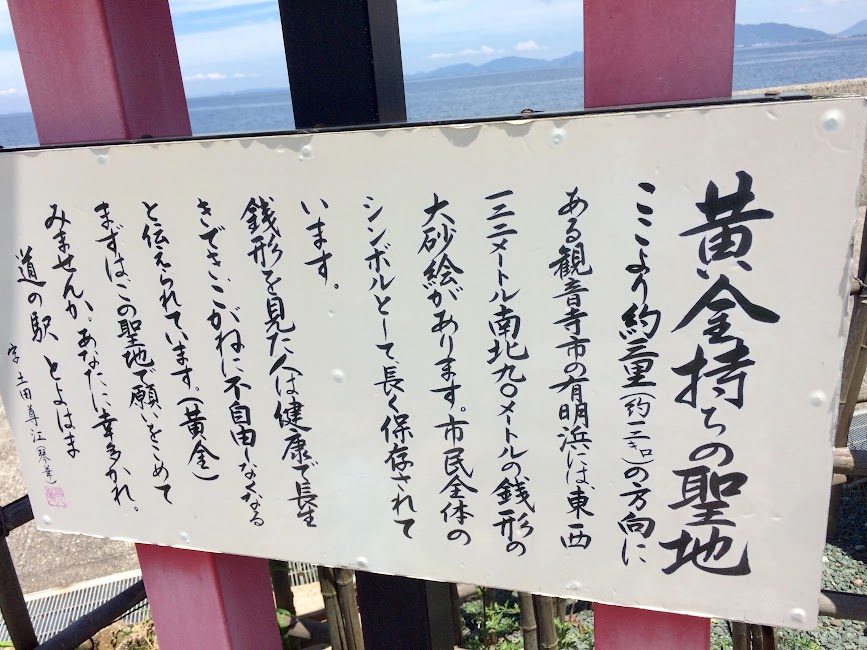 黄金持ちの聖地
ここより約三里(約一二キロ)の方向に
ある観音寺市の有明浜には、東西
一二二メートル南北九〇メートルの銭形の
大砂絵があります。市民全体の
シンボルとして、長く保存されて
います。
銭形を見た人は健康で長生
きできこがねに不自由しなくなる
と伝えられています。(黄金)
まずはこの聖地で願いをこめて
みませんか。あなたに幸多かれ。
道の駅 とよはま
字 土田尊江